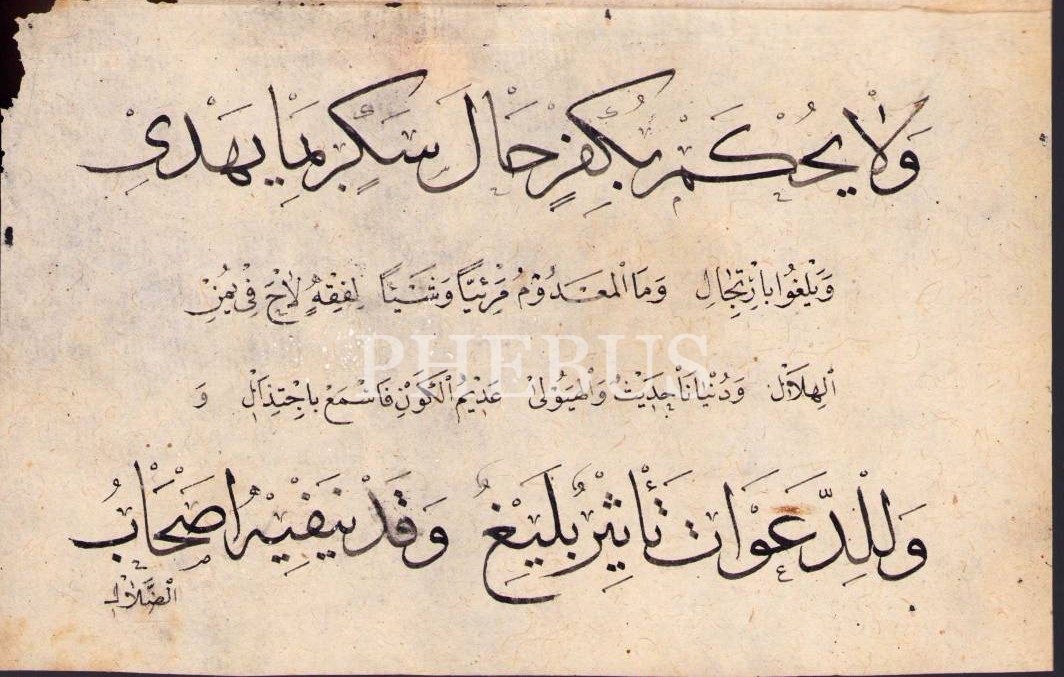 وَلَا يُحْكَمْ بِكُفْرٍ حَالَ سُكْرٍ بِمَا يَهْدِىْ
وَيَلْغُوا بِارْتِجَالِ وَمَا الْمَعْدُوْمُ مَرْئِيًّا وَشَيْئًا لِفِقْهٍ لَاحَ فِىْ يُمْنِ
الْهِلَالِ وَدُنْيَانَا حَدِيْثٌ وَالْهَيُوْلٰى عَدِيْمُ الْكَوْنِ فَاسْمَعْ بِاجْتِذَالِ وَ
PHEBUS
وَلِلدَّعَوَاتِ تَأْثِيْرٌ بَلِيْغٌ وَقَدْ يَنْفِيْهِ اَصْحَابُ
الضَّلَالِ